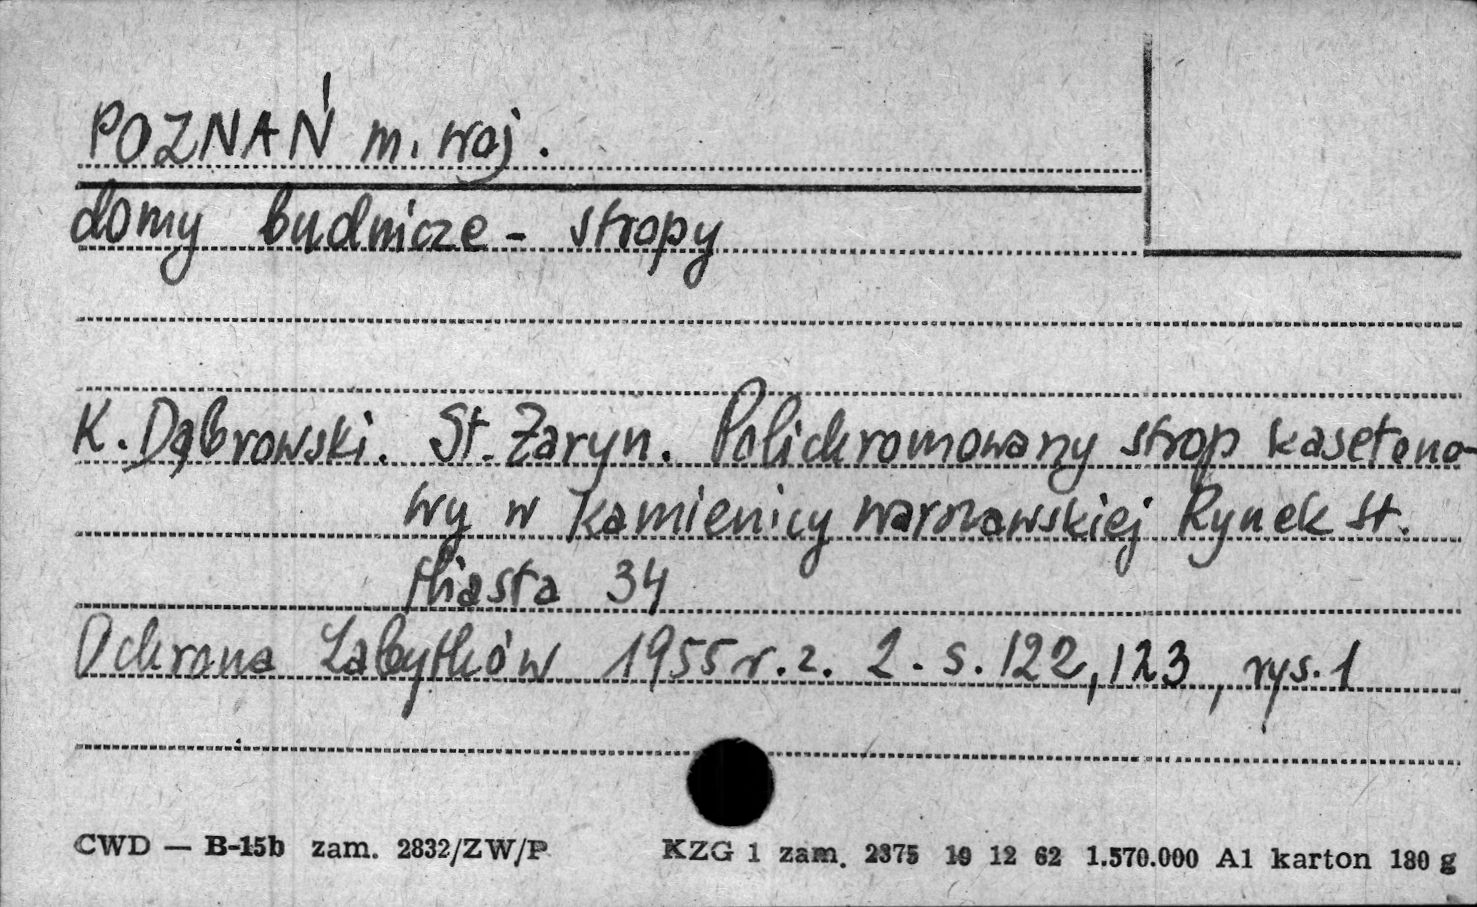 POZNAŃ m. woj.
domy budnicze - stropy
K. Dąbrowski. St. Żaryn. Polichromowany strop kasetono-
wy w kamienicy warszawskiej Rynek St.
Miasta 34
Ochrona Zabytków 1955 r. z. 2. s. 122, 123, rys. 1
CWD — B-15b zam. 2832/ZW/P KZG 1 zam. 2375 10 12 62 1.570.000 A1 karton 180 g